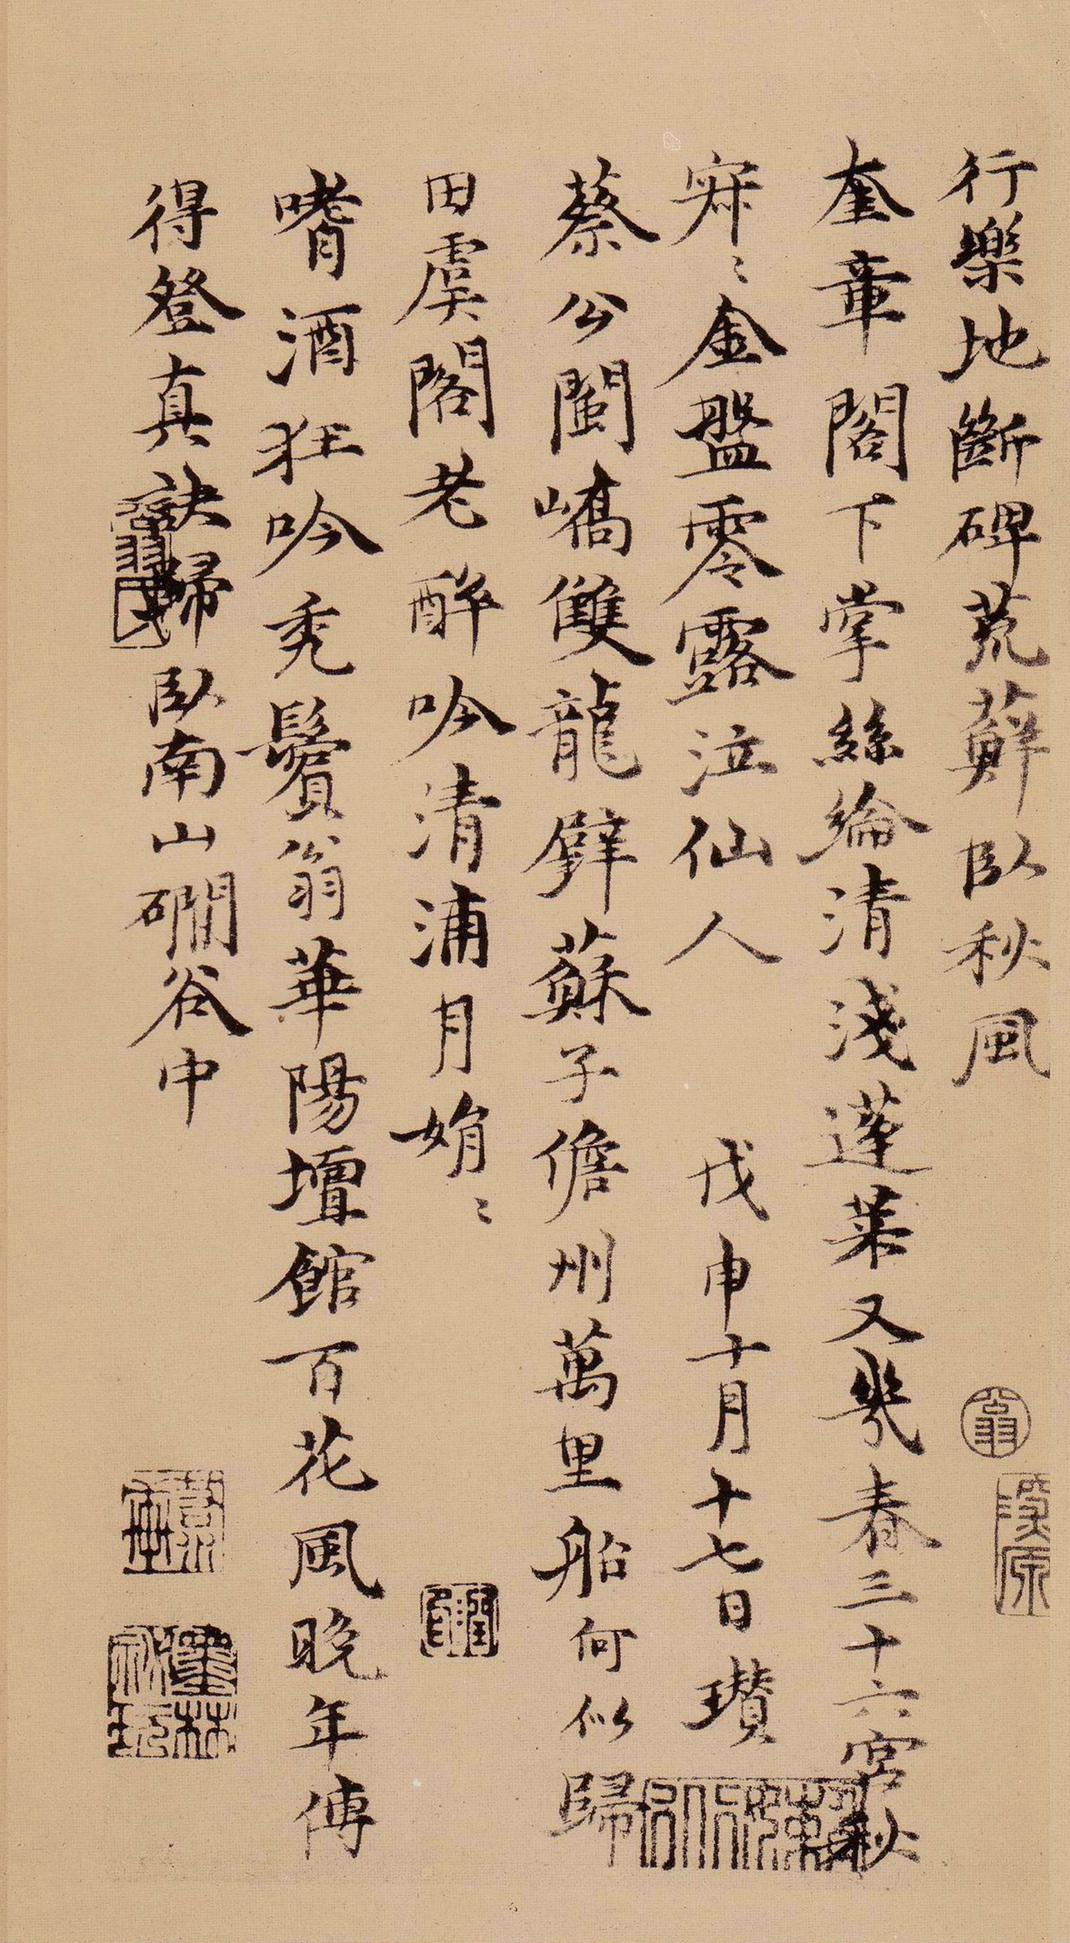 行樂地斷碑荒蘚臥秋風
奎章閣下掌絲綸清淺蓬萊又幾春三十六宮秋
寂〻金盤零露泣仙人 戊申十月十七日瓚
蔡公閩嶠雙龍壁蘇子儋州萬里船何似歸
田虞閣老醉吟清浦月娟〻
嗜酒狂吟禿鬢翁華陽壇館百花風晚年傳
得登真訣歸臥南山磵谷中